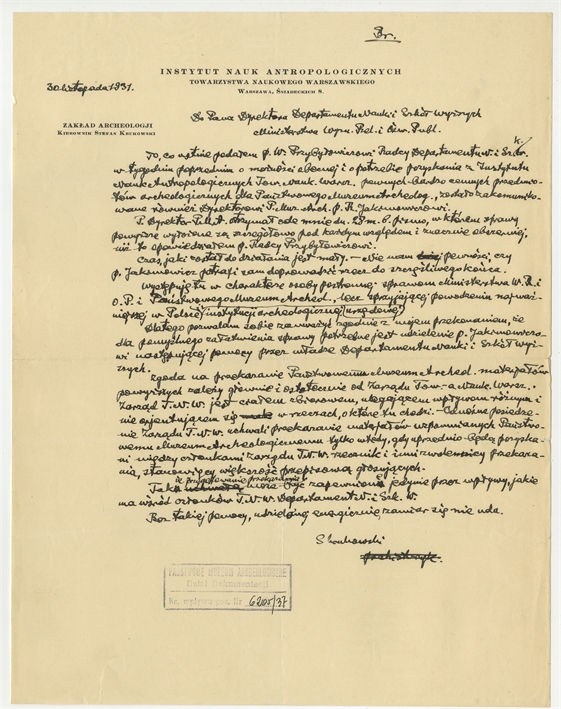 Br.
INSTYTUT NAUK ANTROPOLOGICZNYCH
TOWARZYSTWA NAUKOWEGO WARSZAWSKIEGO
WARSZAWA, ŚNIADECKICH 8.
30 listopada 1931.
ZAKŁAD ARCHEOLOGJI
KIEROWNIK STEFAN KRUKOWSKI
Do Pana Dyrektora Departamentu Nauki i Szkół Wyższych
Ministerstwa Wyzn. Rel. i Ośw. Publ.
To, co ustnie podałem p. W. Przybyłowiczowi Radcy Departamentu N. i
w tygodniu poprzednim o możności obecnej i o potrzebie pozyskania z Instytutu
Nauk Antropologicznych Tow. Nauk. Warsz. pewnych bardzo cennych przedmio-
tów archeologicznych dla Państwowego Muzeum Archeolog., zostało zakomuniko-
wane również Dyrektorowi P. Muz. Arch. p. R. Jakimowiczowi.
P. Dyrektor P. M. A. otrzymał ode mnie dn. 28 m. b. pismo, w którem sprawy
powyższe wyłożone są szczegółowo pod każdym względem i znacznie obszerniej,
niż to opowiedziałem p. Radcy Przybyłowiczowi.
Czas, jaki został do działania jest mały. — Nie mam pewności, czy
p. Jakimowicz potrafi sam doprowadzić rzecz do szczęśliwego końca.
Występuję tu w charakterze osoby postronnej sprawom Ministerstwa W. R. i
O. P. i Państwowego Muzeum Archeol., lecz sprzyjającej powodzeniu najważ-
niejszej w Polsce instytucji archeologicznej (urzędowej).
Dlatego pozwalam sobie zauważyć zgodnie z mojem przekonaniem, że
dla pomyślnego załatwienia sprawy potrzebne jest udzielenie p. Jakimowiczo-
wi następującej pomocy przez władze Departamentu Nauki i Szkół Wyż-
szych.
Zgoda na przekazanie Państwowemu Muzeum Archeol. materjałów
powyższych zależy głównie i ostatecznie od Zarządu Tow-a Nauk. Warsz..
Zarząd T. N. W. jest ciałem zbiorowem, ulegającem wpływom różnym i
nie orjentującem się w rzeczach, o które tu chodzi. — Celowe posiedze-
nie Zarządu T. N. W. uchwali przekazanie materjałów wspomnianych Państwo-
wemu Muzeum Archeologicznemu tylko wtedy, gdy uprzednio będą pozyska-
ni między członkami Zarządu T. N. W. rzecznik i inni zwolennicy przekaza-
nia, stanowiący większość przepisową głosujących.
że przygotowanie przekazania
Tak może być zapewnione jedynie przez wpływy, jakie
ma wśród członków T. N. W. Departament N. i Szk. W.
Bez takiej pomocy, udzielonej energicznie, zamiar się nie uda.
S Krukowski
PAŃSTWOWE MUZEUM ARCHEOLOGICZNE
Dział Dokumentacji
Nr. wpływu 6207/37